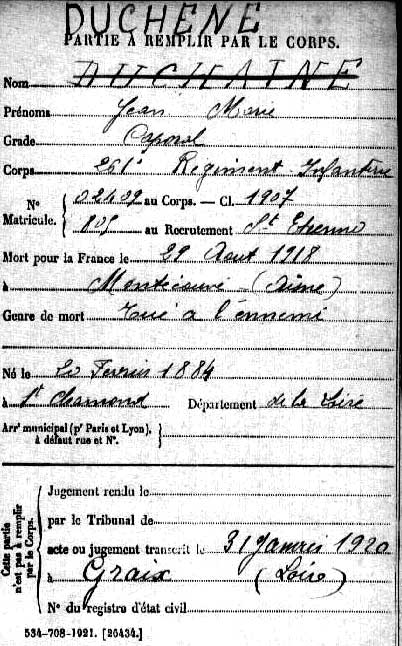 DUCHENE
PARTIE À REMPLIR PAR LE CORPS.
Nom DUCHAINE
Prénoms Jean Marie
Grade Caporal
Corps 261e Regiment Infanterie
N° Matricule. { 02409 au Corps. — Cl. 1907
809 au Recrutement St Etienne
Mort pour la France le 29 Aout 1918
à (Aisne)
Genre de mort Tué a l'ennemi
Né le 20 Fevrier 1884
à St Chamond Département de la Loire
Arrt municipal (pr Paris et Lyon), à défaut rue et N°. }
Cette partie n'est pas à remplir par le Corps.
Jugement rendu le
par le Tribunal de
acte ou jugement transcrit le 31 Janvier 1920
à Graix (Loire)
N° du registre d'état civil
534-708-1921. [26434.]